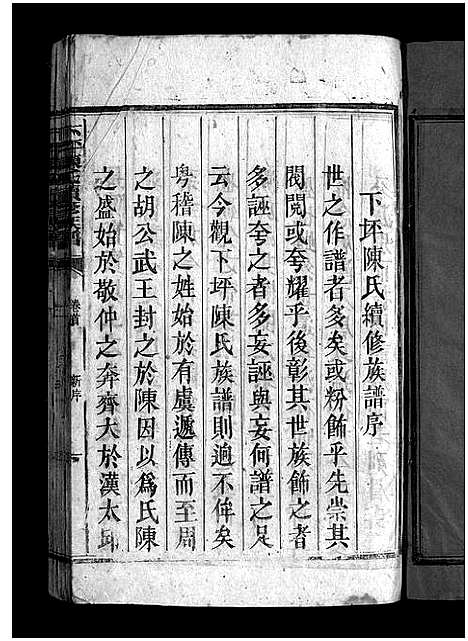 下坪陳氏續修族譜序
世之作譜者多矣或粉飾乎先崇其
閥閱或夸耀乎後彰其世族飾之者
多誣夸之者多妄誣與妄何譜之足
云今觀下坪陳氏族譜則逈不侔矣
粤稽陳之姓始於有虞遞傳而至周
之胡公武王封之於陳因以爲氏陳
之盛始於敬仲之奔齊大於漢太邱
卷首
新序